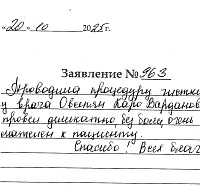 «20» 10 2025г.
Заявление № 963
Проводила процедуру
у врача Овсепян Каро Варданов
провел деликатно, без боли, очень
мателен к пациенту.
Спасибо! Всех благ